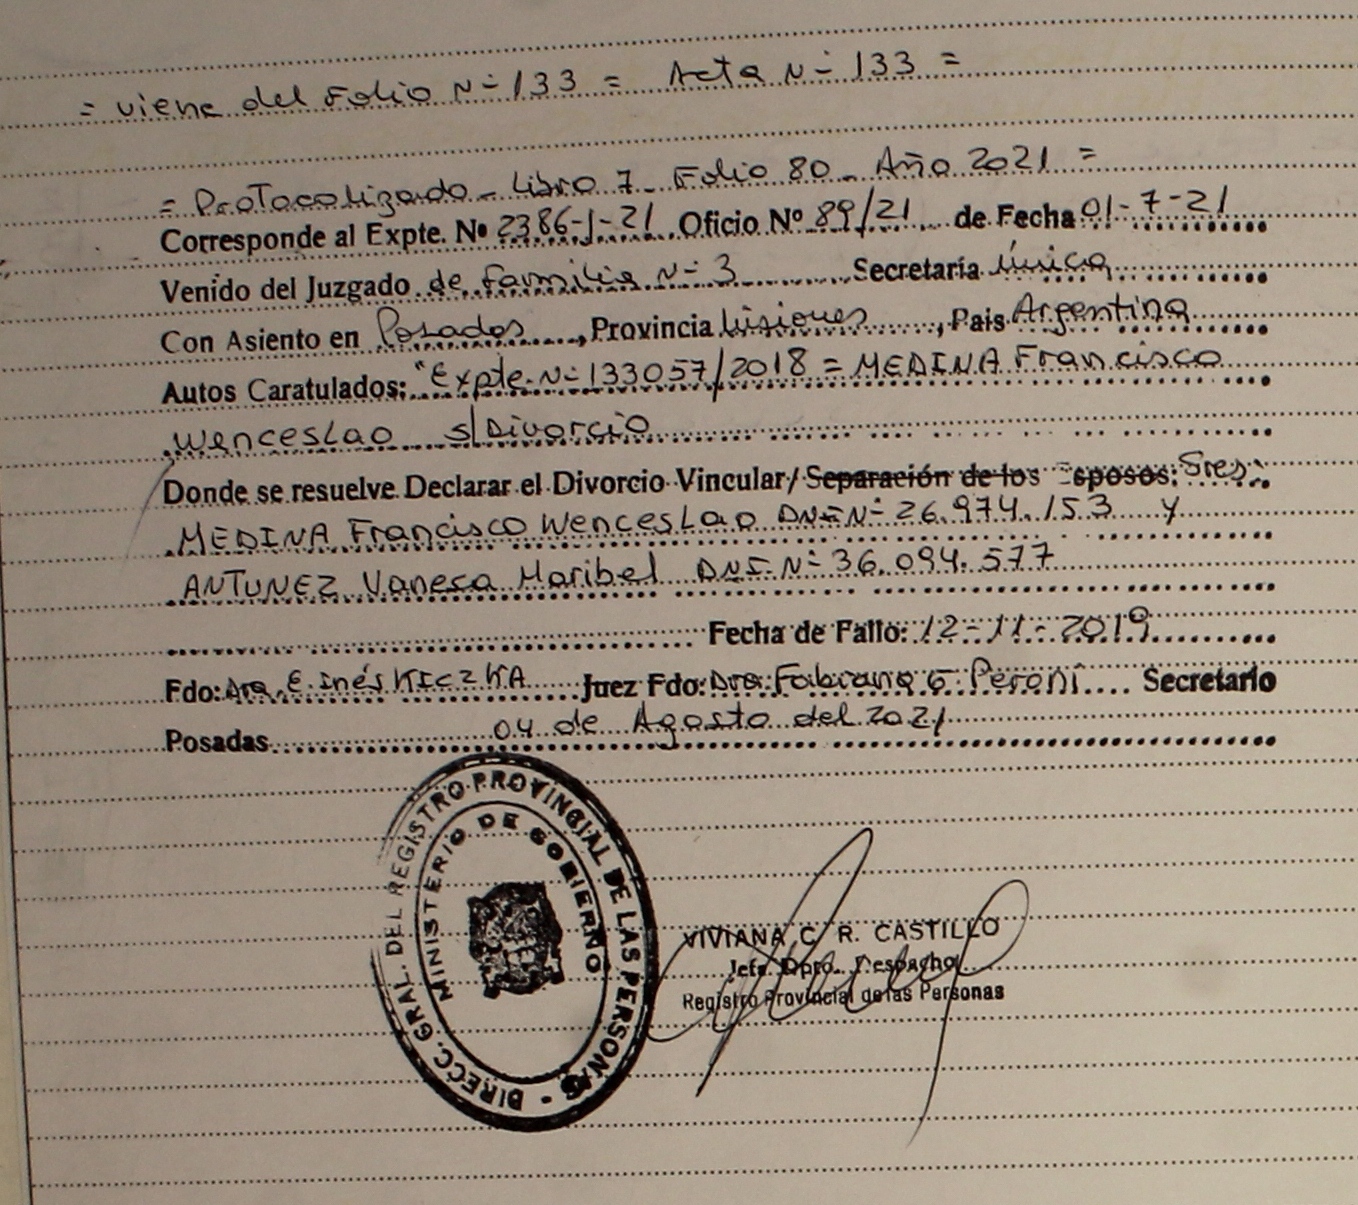 = viene del Folio N- 133 = Acta N- 133 =
= Protocolizado - Libro 7 - Folio 80 - Año 2021 =
Corresponde al Expte. Nº 2386-J-21 Oficio Nº 89/21 de Fecha 01-7-21
Venido del Juzgado de Familia N- 3 Secretaría Única
Con Asiento en Posadas, Provincia Misiones, Pais Argentina
Autos Caratulados: "Expte. N- 133057/2018 = MEDINA Francisco
Wenceslao s/Divorcio
Donde se resuelve Declarar el Divorcio Vincular/ Separación de los Esposos: Sres.
MEDINA Francisco Wenceslao DNI N- 26.974.153 y
ANTUNEZ Vanesa Maribel DNI N- 36.094.577
Fecha de Fallo: 12-11-2019
Fdo: Dra. E. Inés KICZKA Juez Fdo: Dra. Fabiana G. Peroni Secretario
Posadas 04 de Agosto del 2021
DIRECC. GRAL. DEL REGISTRO PROVINCIAL DE LAS PERSONAS -
MINISTERIO DE GOBIERNO
VIVIANA C. R. CASTILLO
Jefa Dpto. Despacho
Registro Provincial de las Personas